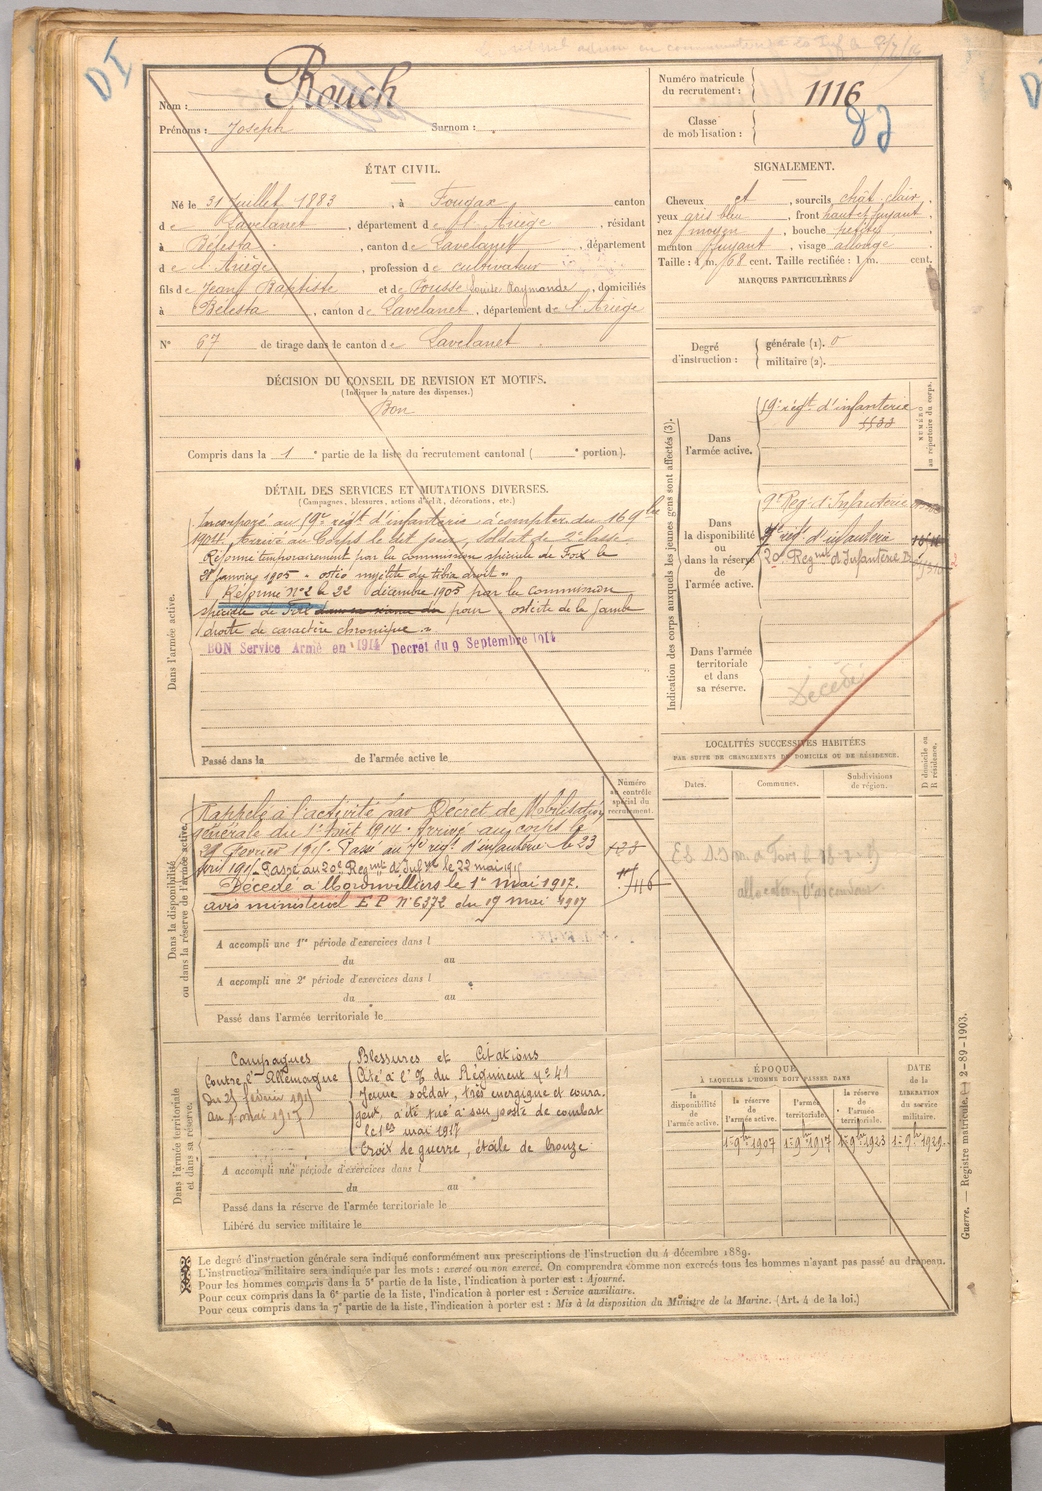 DI
Nom : Rouch
Prénoms : Joseph Surnom :
Numéro matricule du recrutement : 1116
Classe de mobilisation :
ÉTAT CIVIL.
Né le 31 Juillet 1883, à Fougax canton
de Lavelanet, département de l'Ariège, résidant
à Bélesta, canton de Lavelanet, département
de l'Ariège, profession de cultivateur
fils de Jean Baptiste et de Rousse Raymonde, domiciliés
à Bélesta, canton de Lavelanet, département de l'Ariège
N° 67 de tirage dans le canton de Lavelanet.
SIGNALEMENT.
Cheveux et, sourcils chât. clair,
yeux gris bleu, front haut et fuyant,
nez moyen, bouche petite,
menton fuyant, visage allongé
Taille : 1 m. 68 cent. Taille rectifiée : 1 m. cent.
MARQUES PARTICULIÈRES :
Degré d'instruction : générale (1). 0
militaire (2).
DÉCISION DU CONSEIL DE REVISION ET MOTIFS.
(Indiquer la nature des dispenses.)
Bon
Compris dans la 1e partie de la liste du recrutement cantonal ( e portion).
DÉTAIL DES SERVICES ET MUTATIONS DIVERSES.
(Campagnes, blessures, actions d'éclat, décorations, etc.)
Dans l'armée active.
Incorporé au 19e régt d'infanterie à compter du 16 9bre
1904. Arrivé au Corps le dit jour, soldat de 2e classe.
Réformé temporairement par la commission spéciale de Foix le
janvier 1905 "ostéo myélite du tibia droit"
Réformé N°2 le 22 décembre 1905 par la commission
spéciale de Foix pour "ostéite de la jambe
droite de caractère chronique."
BON Service Armé en 1914 Decret du 9 Septembre 1914
Passé dans la de l'armée active le
Indication des corps auxquels les jeunes gens sont affectés (3).
NUMÉRO au répertoire du corps.
Dans l'armée active.
19e régt d'infanterie
Dans la disponibilité ou dans la réserve de l'armée active.
9e Reg. d'Infanterie
régt d'infanterie
20e Regmt d'Infanterie
Dans l'armée territoriale et dans sa réserve.
Décédé
LOCALITÉS SUCCESSIVES HABITÉES
PAR SUITE DE CHANGEMENTS DE DOMICILE OU DE RÉSIDENCE.
Dates. Communes. Subdivisions de région.
D domicile ou R résidence.
Dans la disponibilité ou dans la réserve de l'armée active.
Numéro au contrôle spécial du recrutement.
Rappelé à l'activité par Décret de Mobilisation
générale du 1er Août 1914. Arrivé au corps le
Février 1915. Passé au régt d'infanterie le 23
avril 1915. Passé au 20e Regmt d'Infrie le 22 mai 1915
Décédé à Moronvilliers le 1er mai 1917.
avis ministeriel E P N° 6372 du 19 mai 1917
A accompli une 1re période d'exercices dans l
du au
A accompli une 2e période d'exercices dans l
du au
Passé dans l'armée territoriale le
allocation d'ascendant
Dans l'armée territoriale et dans sa réserve.
Campagnes
Contre l'Allemagne
Du 25 février 1915
Au 1 mai 1917
Blessures et Citations
Cité à l'O. du Régiment n° 41
Jeune soldat, très énergique et coura-
geux, a été tué à son poste de combat
le 1er mai 1917
Croix de guerre, étoile de bronze
A accompli une période d'exercices dans l
du au
Passé dans la réserve de l'armée territoriale le
Libéré du service militaire le
ÉPOQUE
À LAQUELLE L'HOMME DOIT PASSER DANS
DATE de la LIBÉRATION du service militaire.
la disponibilité de l'armée active.
la réserve de l'armée active.
l'armée territoriale.
la réserve de l'armée territoriale.
1er 9bre 1907 1er 9bre 1917 1er 9bre 1923 1er 9bre 1929
Le degré d'instruction générale sera indiqué conformément aux prescriptions de l'instruction du 4 décembre 1889.
L'instruction militaire sera indiquée par les mots : exercé ou non exercé. On comprendra comme non exercés tous les hommes n'ayant pas passé au drapeau.
Pour les hommes compris dans la 5e partie de la liste, l'indication à porter est : Ajourné.
Pour ceux compris dans la 6e partie de la liste, l'indication à porter est : Service auxiliaire.
Pour ceux compris dans la 7e partie de la liste, l'indication à porter est : Mis à la disposition du Ministre de la Marine. (Art. 4 de la loi.)
Guerre. — Registre matricule. 2-89-1903.